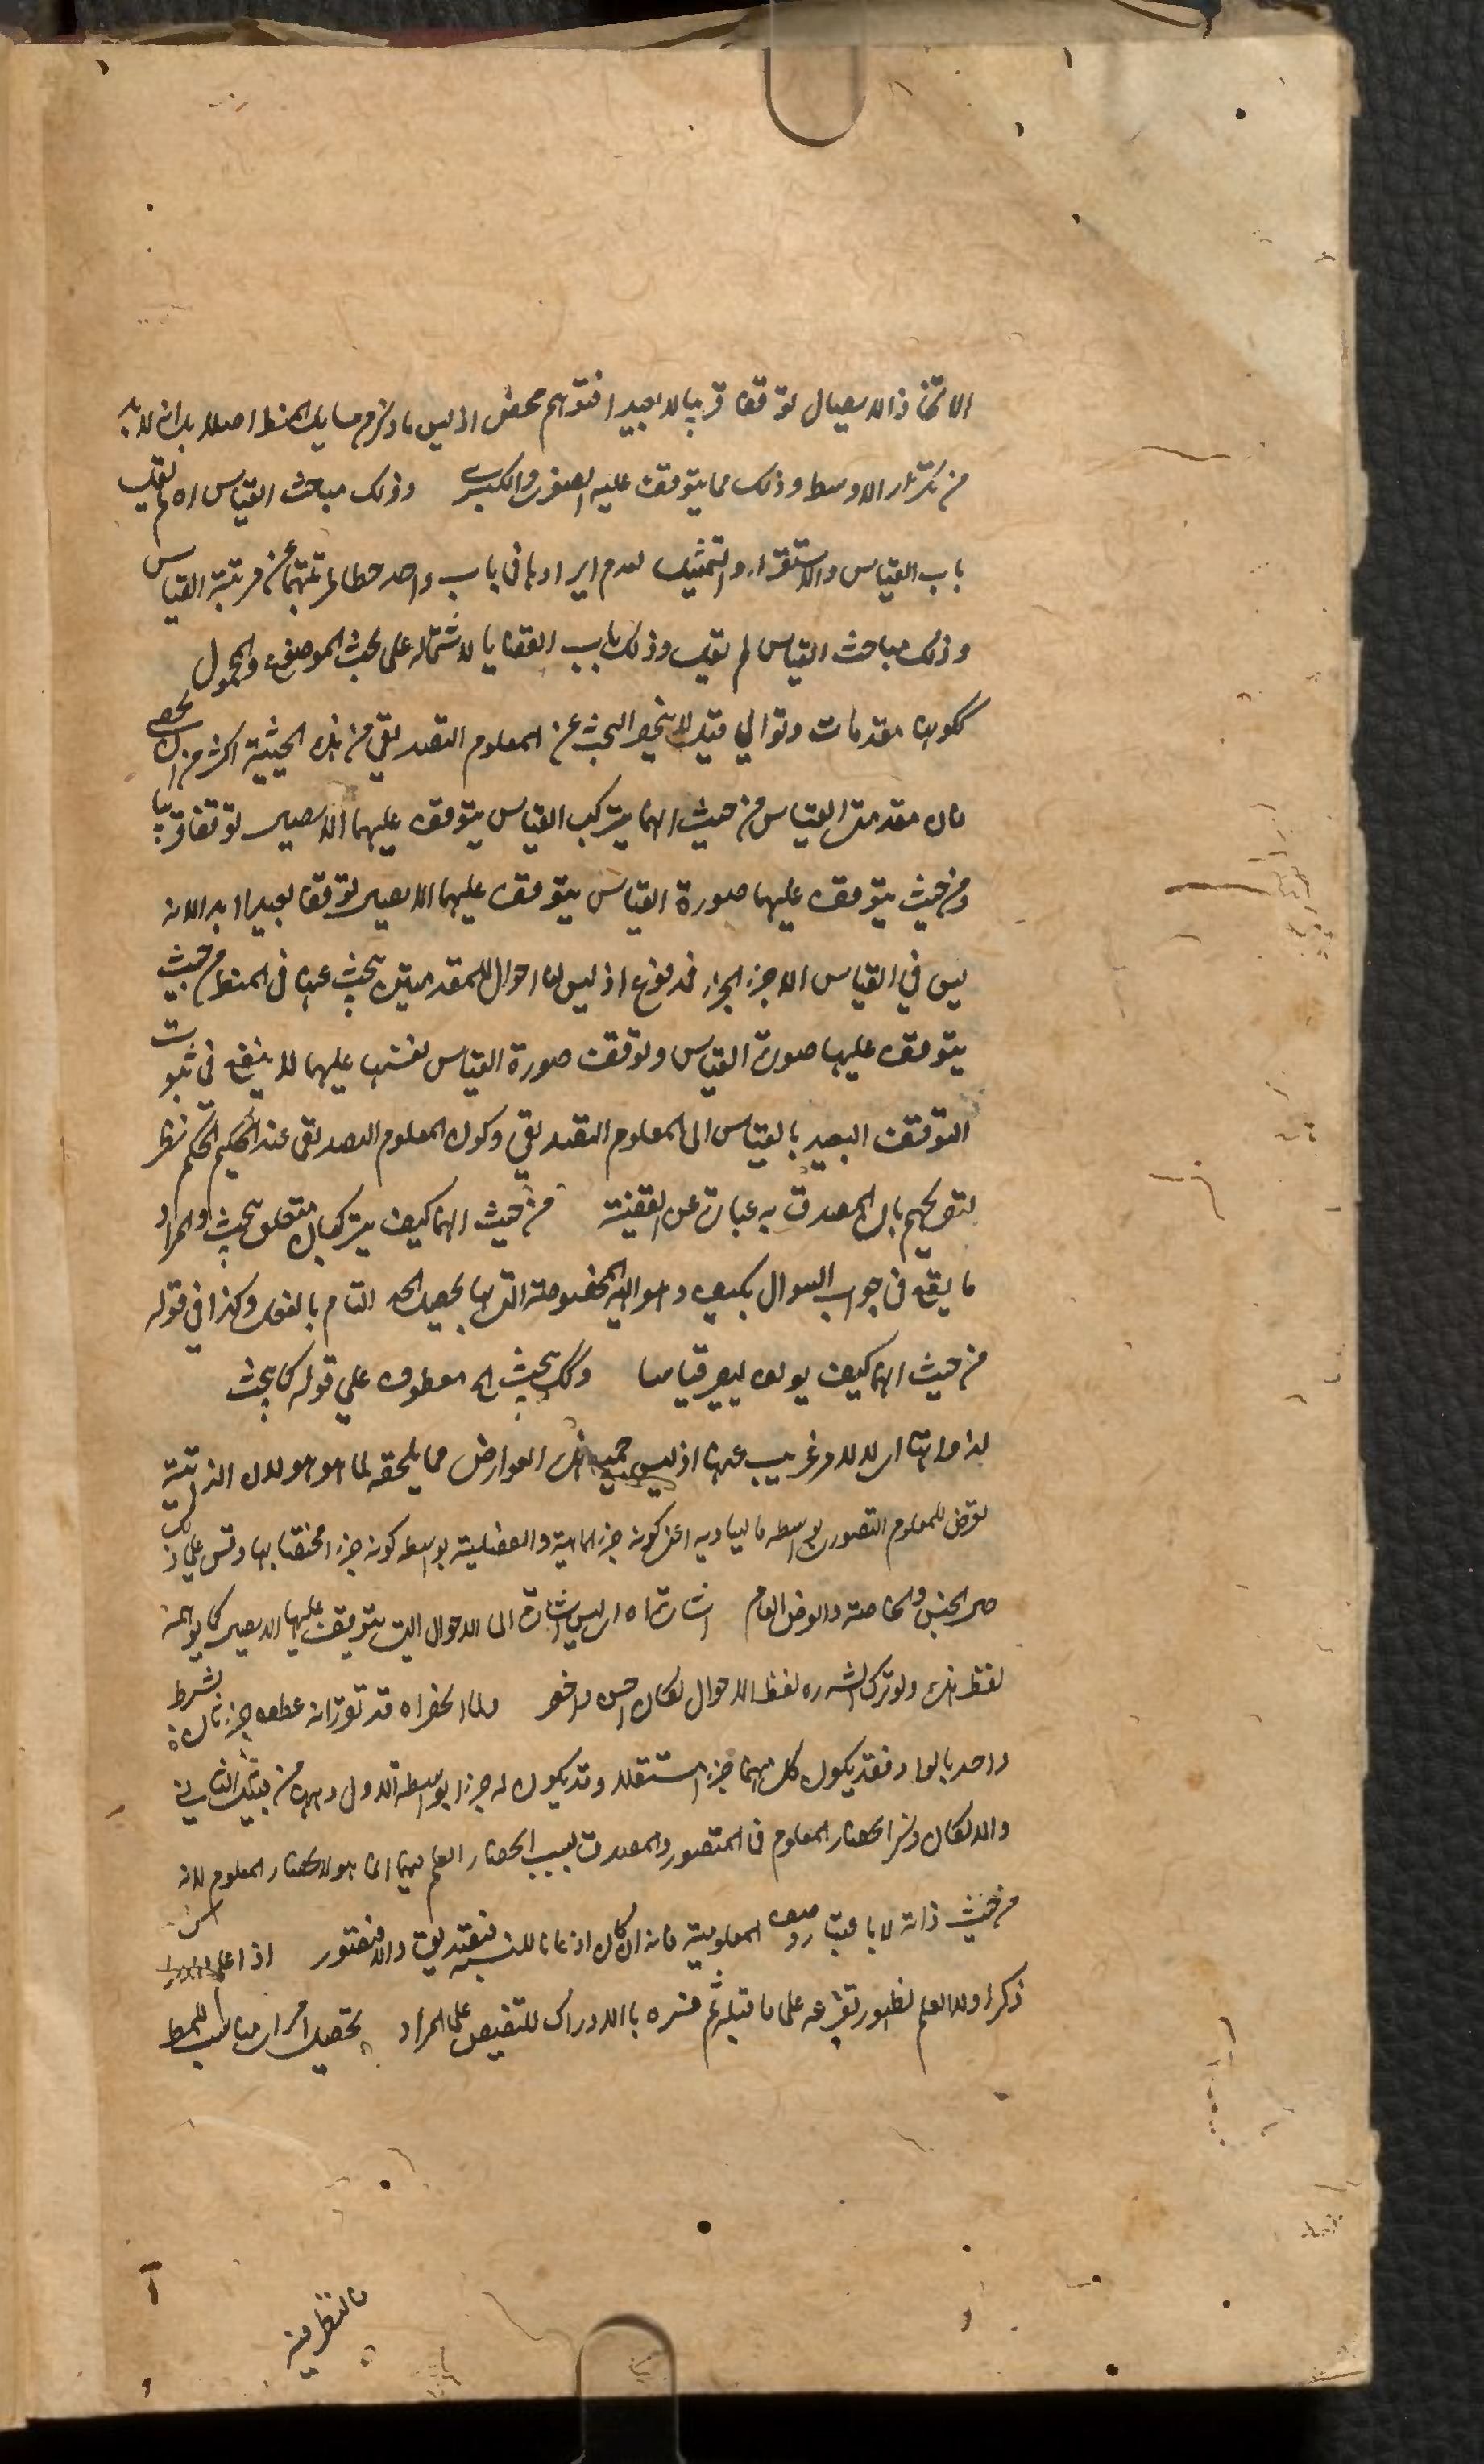 الاتحاد الايصال توقفا قريبا لا بعيدا فتوهم محض اذ ليس ما ذكرتم مسايل المنط اصلا بل انه لا بد
من تكرار الاوسط وذلك مما يتوقف عليه الصغرى والكبرى وذلك مباحث القياس اه لم يقل
باب القياس والاستقراء والتمثيل لعدم ايرادها في باب واحد حطا لمرتبتهما عن مرتبة القياس
وذلك مباحث القياس لم يقل وذلك باب القضايا لاشتماله على بحث الموضوع والمحمول
ككونها مقدمات وتوالي قيل لا ينحصر البحث عن المعلوم التصديقي من هذه الحيثية اكثر من ان يحصى
فان مقدمتي القياس من حيث انهما يتركب القياس يتوقف عليهما الايصال توقفا قريبا
ومن حيث يتوقف عليهما صورة القياس يتوقف عليهما الايصال توقفا بعيدا لانه
ليس في القياس الا جزء الجزء فمدفوع اذ ليس لنا احوال للمقدمتين يبحث عنها في المنط من حيث
يتوقف عليها صورة القياس وتوقف صورة القياس نفسها عليهما لا ينفع في ثبوت
التوقف البعيد بالقياس الى المعلوم التصديقي وكون المعلوم التصديقي عند الحكيم الحكم نظرا
لتصريحهم بان المصدق به عبارة عن القضية من حيث انها كيف يتركبان متعلق يبحث والمراد
ما يقع في جواب السوال بكيف وهو الهيئة المخصوصة التي بها يحصل الحد التام بالفعل وكذا في قوله
من حيث انها كيف يولف ليصير قياسا وكك يبحث الخ معطوف على قوله كما يبحث
لذواتها اى لا لامر غريب عنها اذ ليس جميع هذه العوارض مما يلحقه لما هو هو لان الذاتية
تعرض للمعلوم التصوري بواسطة ما يساويه اعنى كونه جزء لماهية والفصلية بواسطة كونه جزء مختصا بها وقس على ذلك
حال الجنس والخاصة والعرض العام اشارة اه اى ليس اشارة الى الاحوال التي يتوقف عليها الايصال كما يوهمه
لفظ هذه ولو ترك الاشارة لفظ الاحوال لكان احسن واخصر ولما انحصر اه قد تقرر ان عطف جزئين بشرط
واحد بالواو فقد يكون كل منهما جزء مستقلا وقد يكون له جزء بواسطة الاول وههنا من قبيل الثاني
والا لكان ذكر انحصار المعلوم في المتصور والمصدق بسبب انحصار العلم فيهما انما هو لانحصار المعلوم لانه
من حيث ذاته لا باعتبار وصف المعلومية فانه ان كان اذعانا للنسبة فتصديق والا فتصور اذا علم
ذكر اولا العلم لظهور تفرعه على ما قبله ثم فسره بالادراك للتنصيص على المراد بتحصيل امر اى مناسب للمط
فالنظر فيه